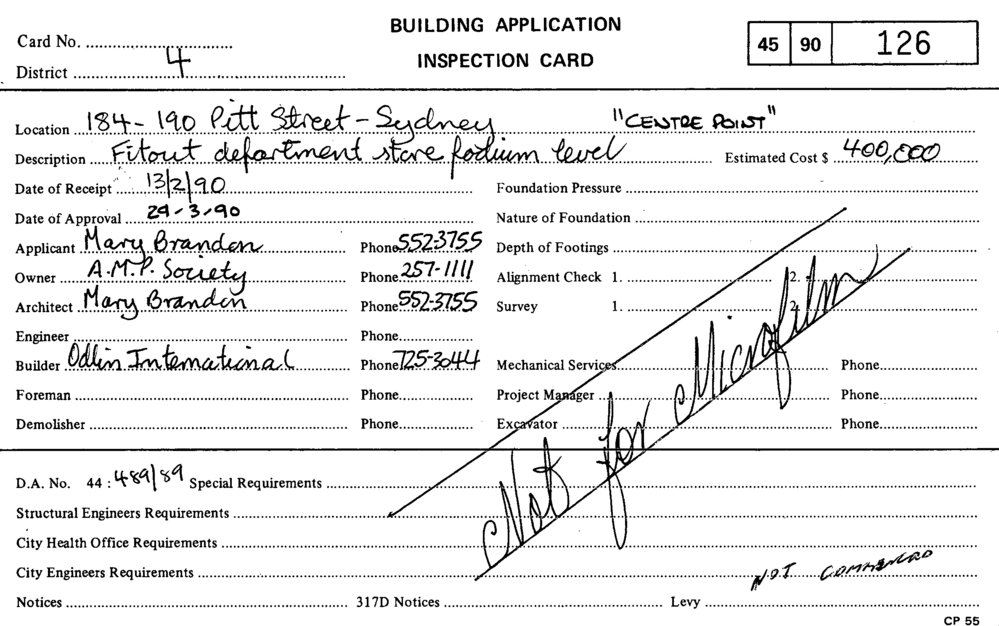 BUILDING APPLICATION
INSPECTION CARD
Card No.
District 4
45 90 126
Location 184-190 Pitt Street - Sydney "CENTRE POINT"
Description Fitout department store podium level Estimated Cost $ 400,000
Date of Receipt 13/2/90 Foundation Pressure
Date of Approval 29-3-90 Nature of Foundation
Applicant Mary Brandon Phone 552-3755 Depth of Footings
Owner A.M.P. Society Phone 257-1111 Alignment Check 1. 2.
Architect Mary Brandon Phone 552-3755 Survey 1. 2.
Engineer Phone
Builder Odlin International Phone 725-3044 Mechanical Services Phone
Foreman Phone Project Manager Phone
Demolisher Phone Excavator Phone
Not for Microfilm
D.A. No. 44: 489/89 Special Requirements
Structural Engineers Requirements
City Health Office Requirements
City Engineers Requirements NOT COMMENCED
Notices 317D Notices Levy
CP 55